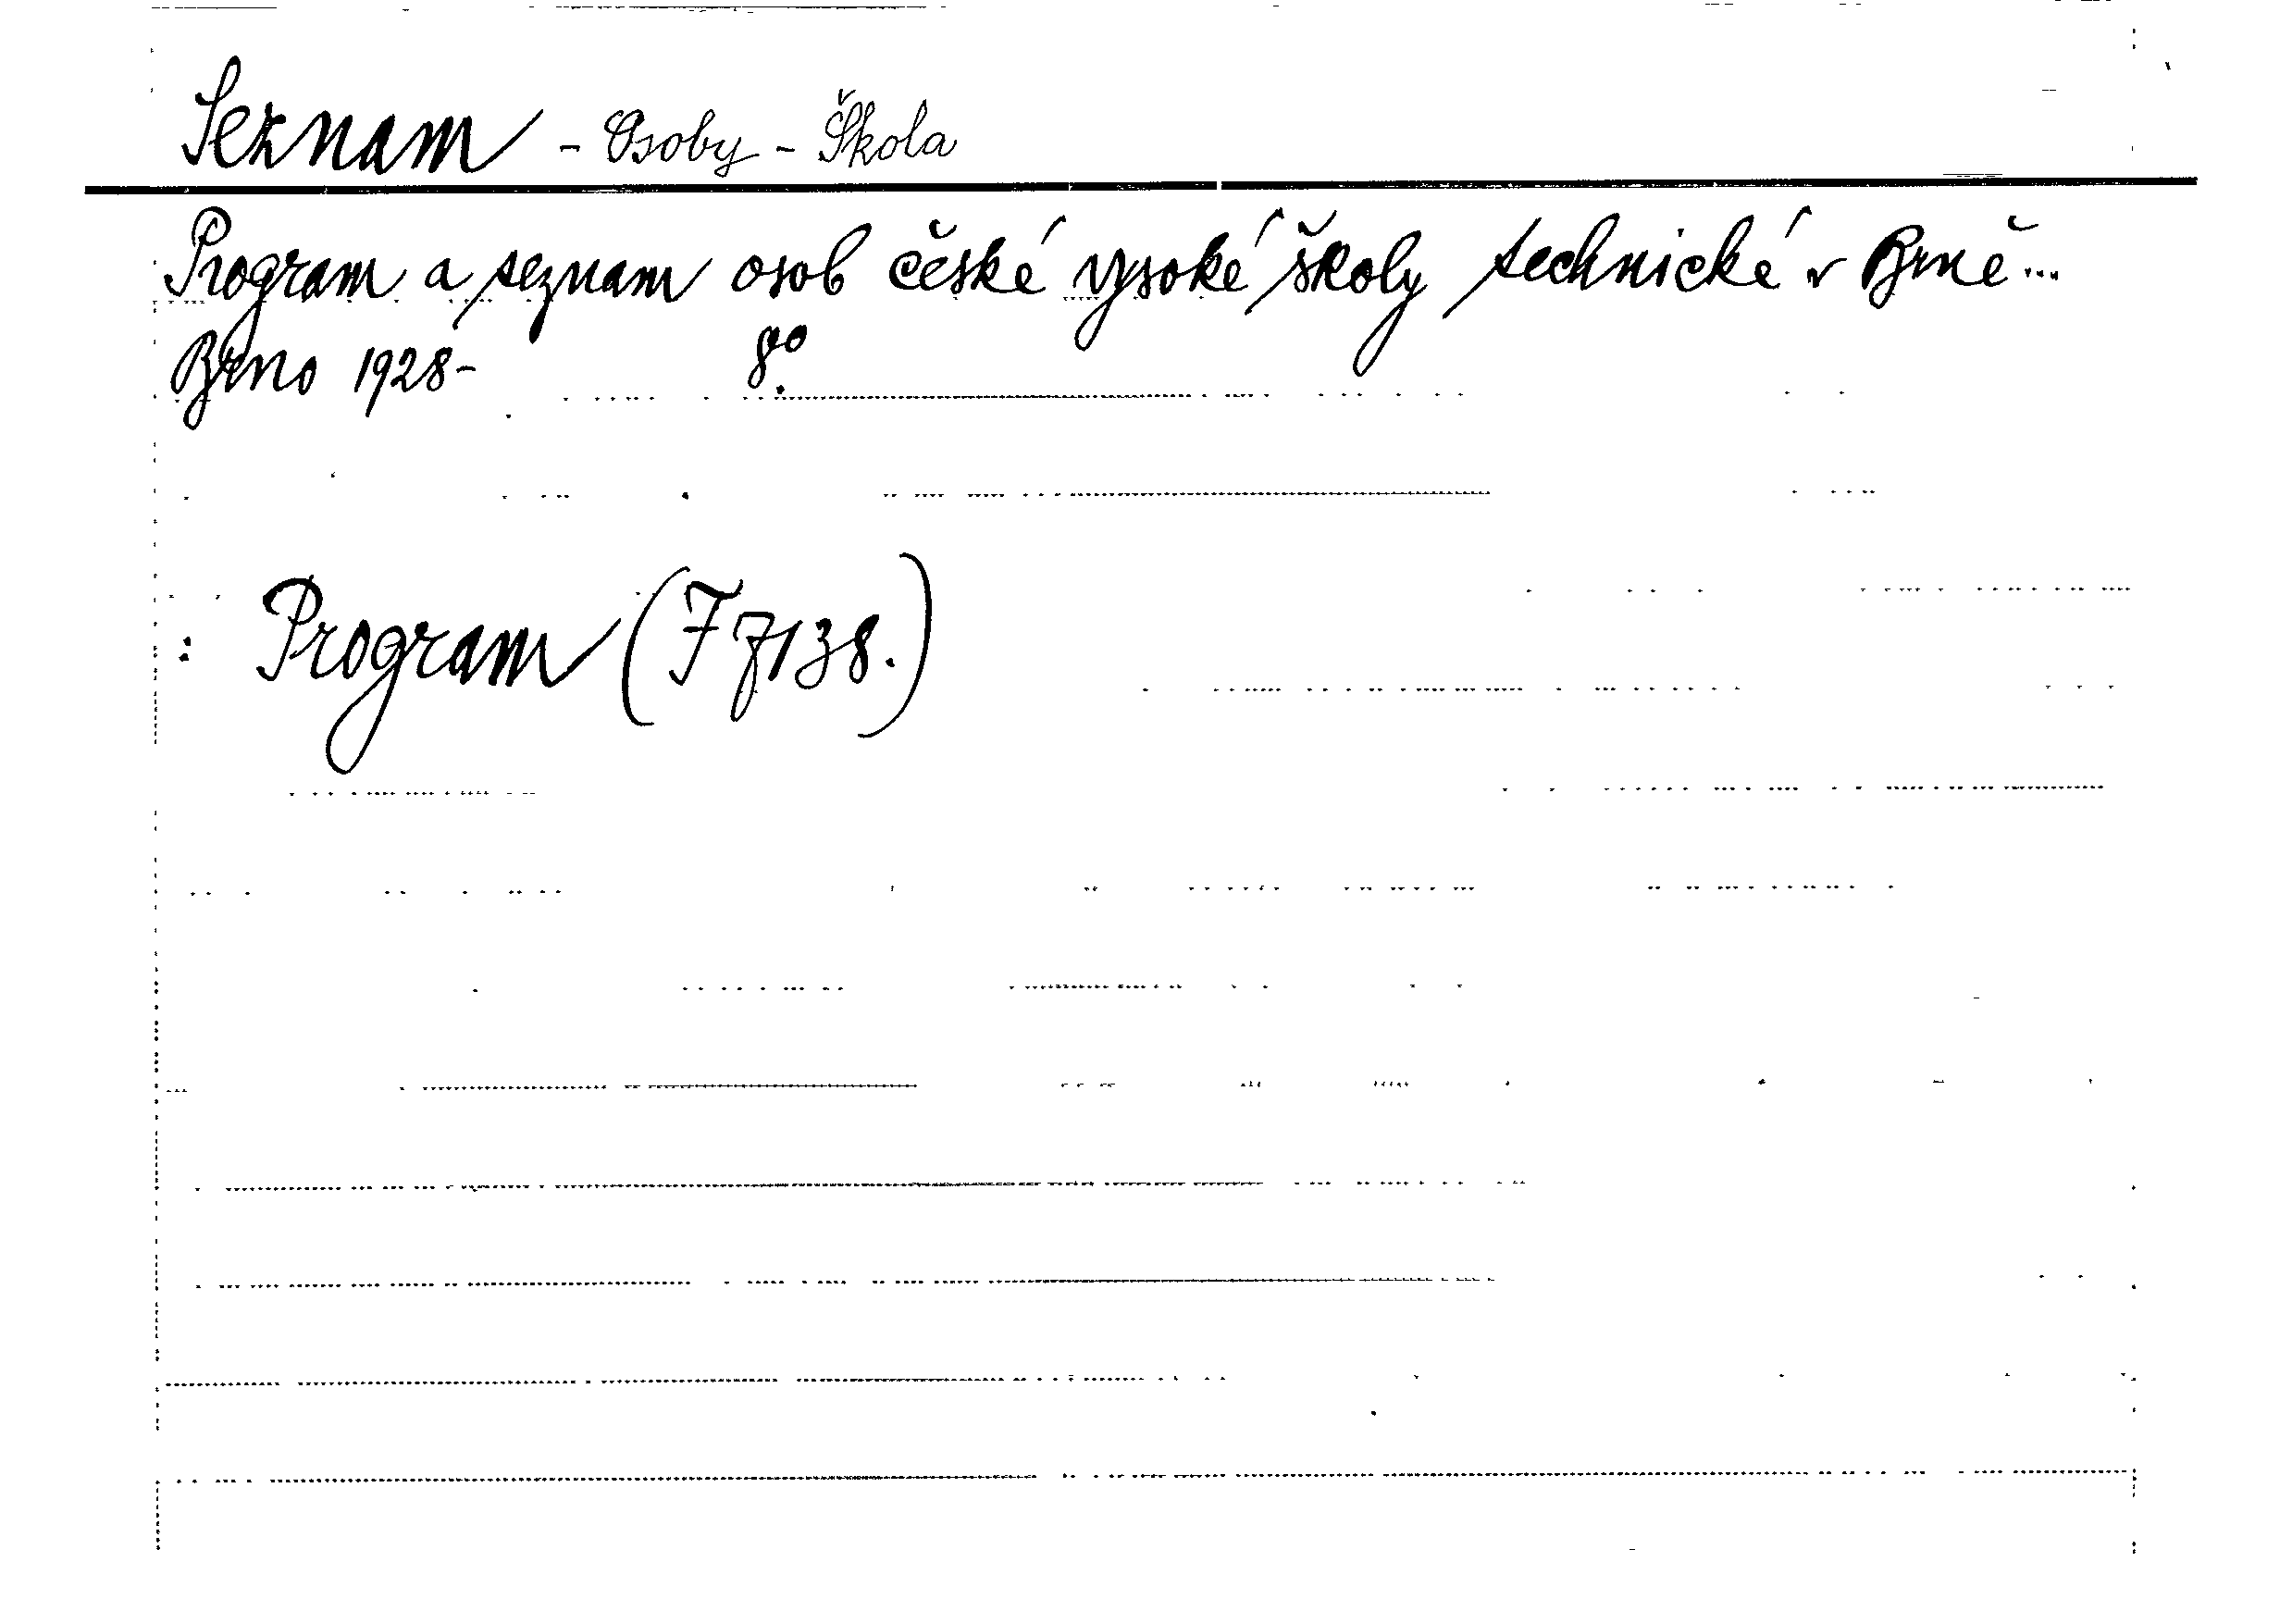 Seznam - Osoby - Škola
Program a seznam osob české vysoké školy technické v Brně...
Brno 1928- 8°.
: Program (F 7138.)